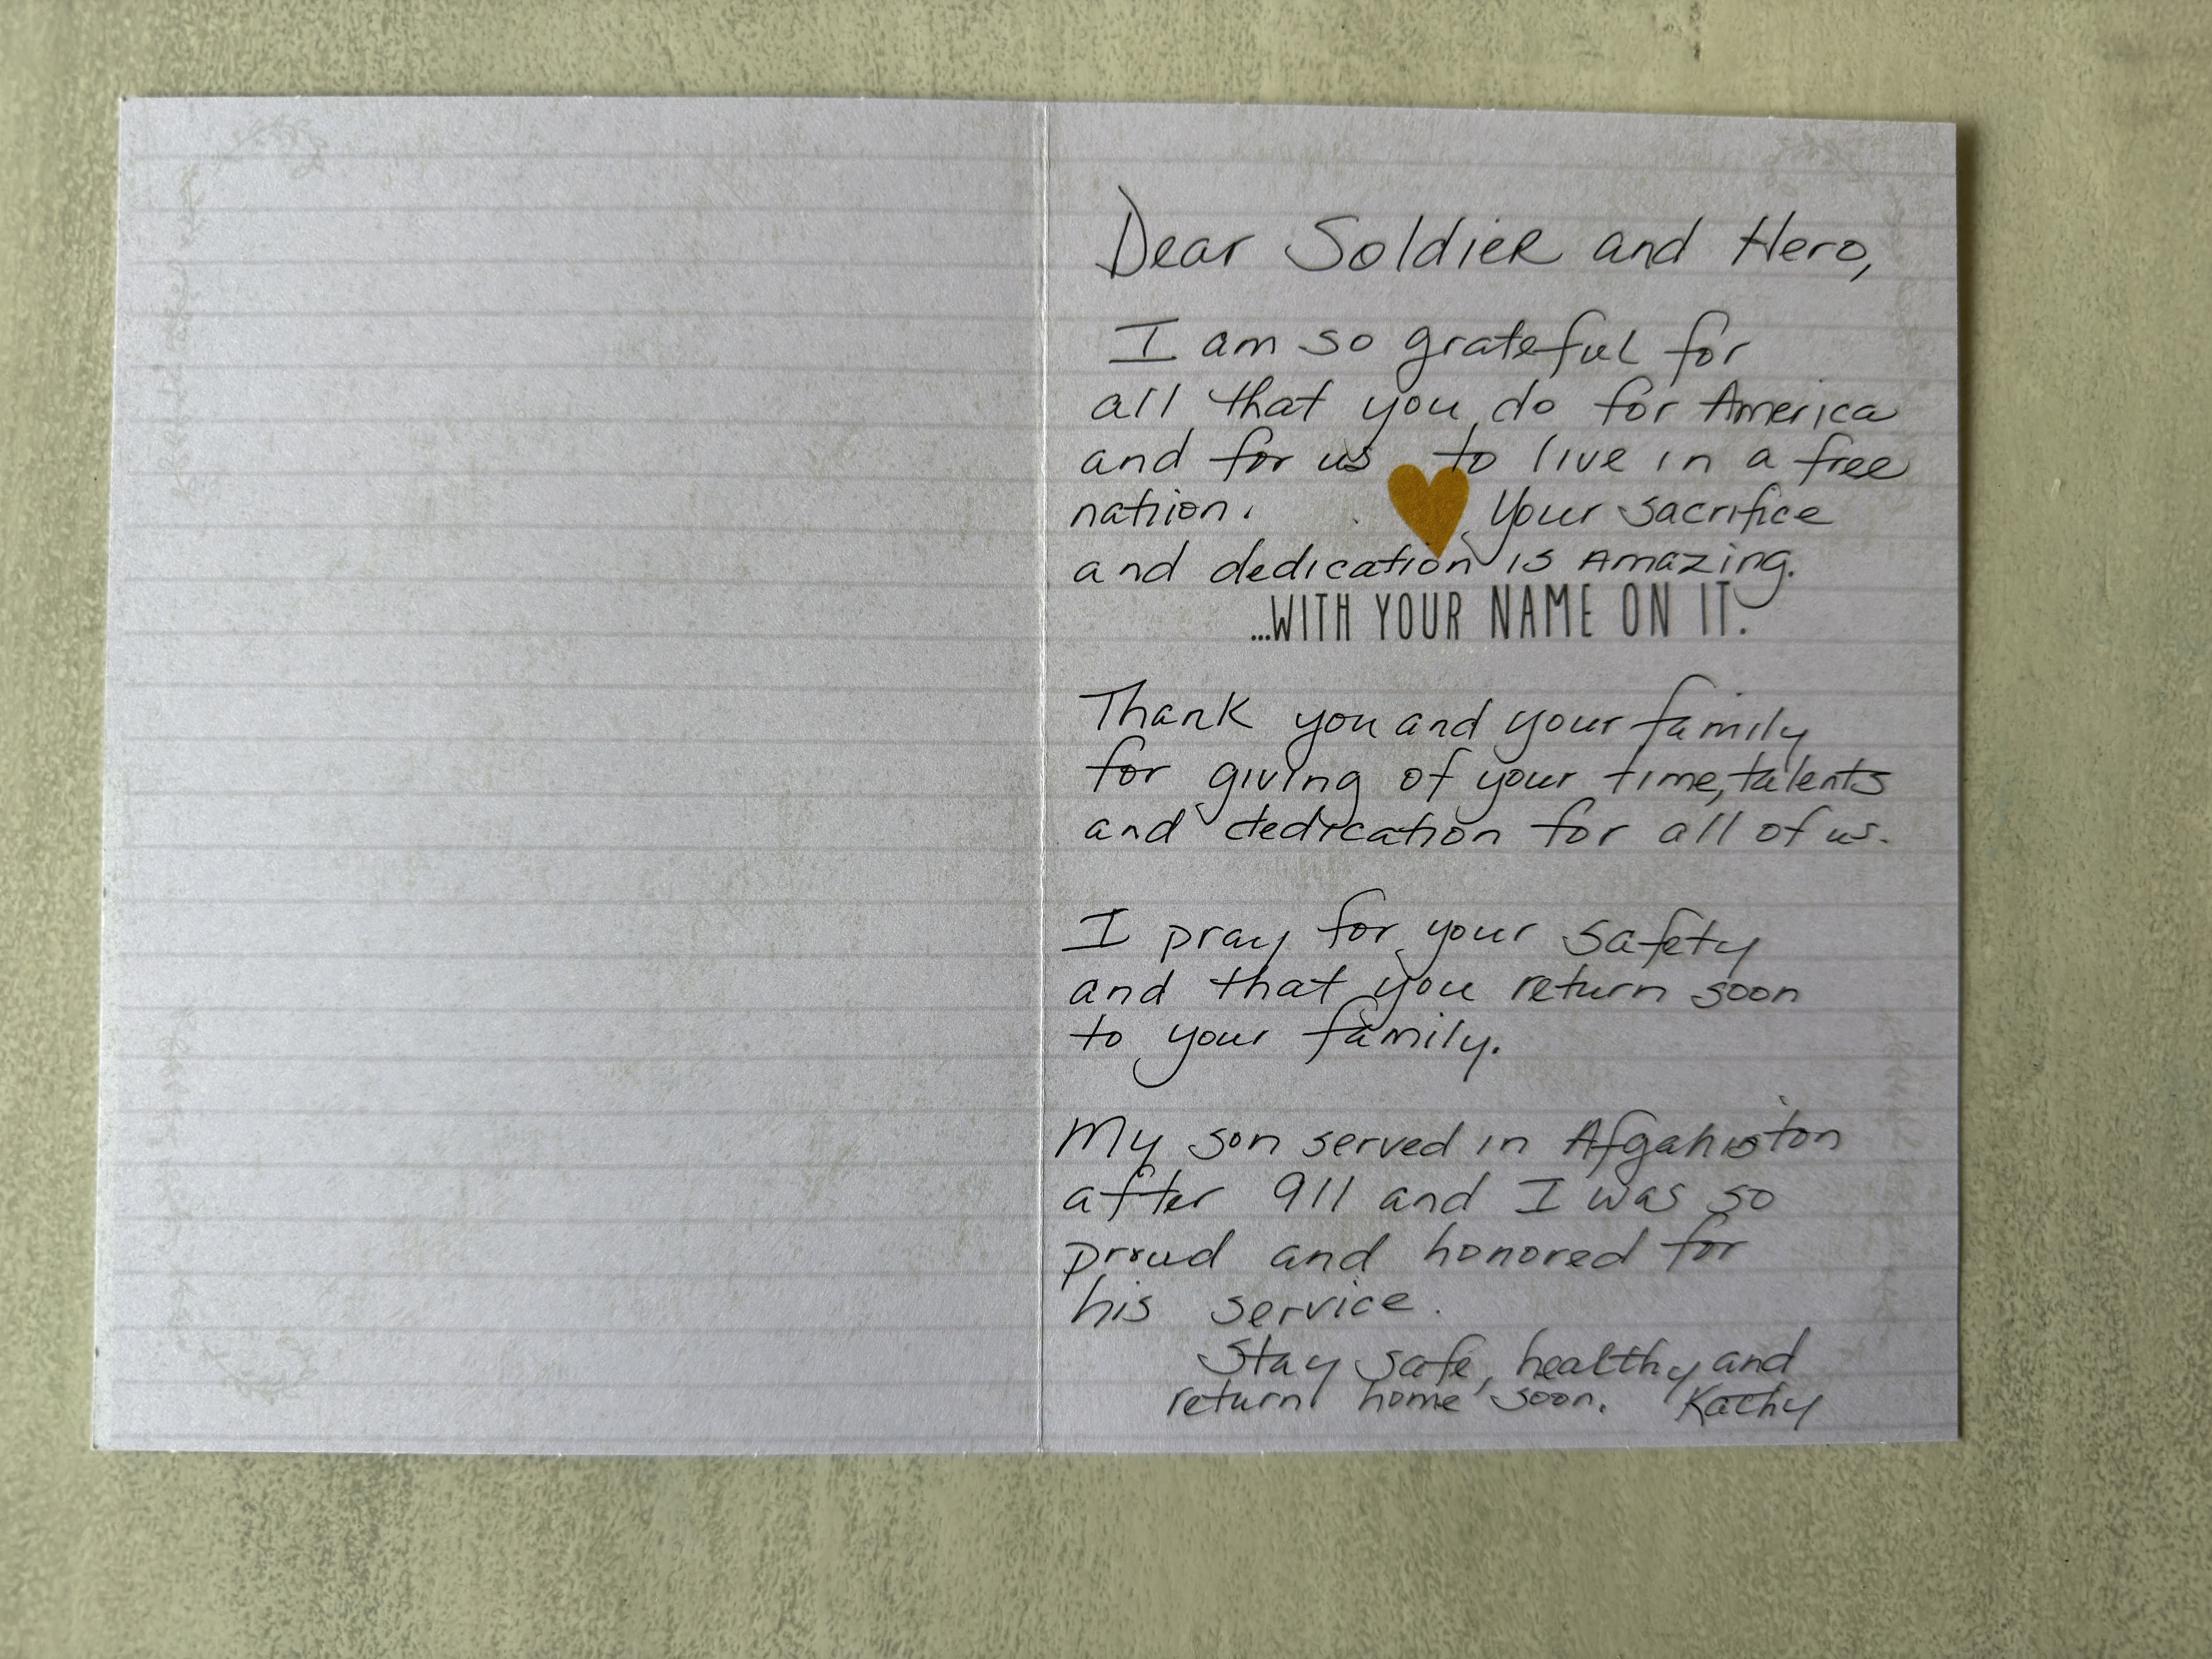 Dear Soldier and Hero,
I am so grateful for
all that you do for America
and for us to live in a free
nation. Your sacrifice
and dedication is Amazing.
...WITH YOUR NAME ON IT.
Thank you and your family
for giving of your time, talents
and dedication for all of us.
I pray for your safety
and that you return soon
to your family.
My son served in Afgahiston
after 911 and I was so
proud and honored for
his service.
Stay safe, healthy and
return home soon. Kathy